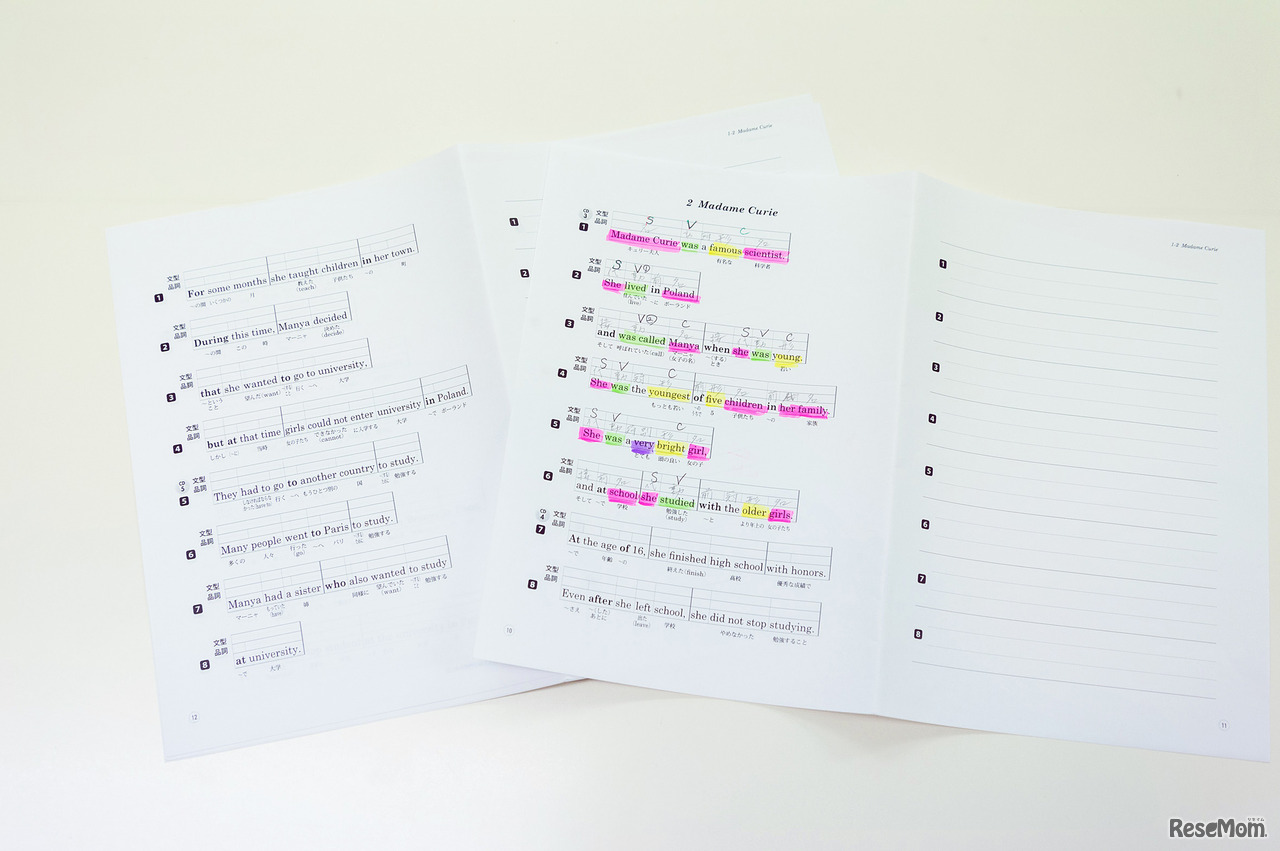 1-2 Madame Curie
文型
品詞
1 For some months she taught children in her town.
〜の間 いくつかの 月 教えた 子供たち 〜の 町
(teach)
文型
品詞
2 During this time, Manya decided
〜の間 この 時 マーニャ 決めた
(decide)
文型
品詞
3 that she wanted to go to university,
〜という 望んだ(want) 行く 〜へ 大学
こと
文型
品詞
4 but at that time girls could not enter university in Poland.
しかし 〜に 当時 女の子たち できなかった に入学する 大学 〜で ポーランド
(cannot)
CD 5
文型
品詞
5 They had to go to another country to study.
しなければならな 行く 〜へ もうひとつ別の 国 勉強する
かった(have to)
文型
品詞
6 Many people went to Paris to study.
多くの 人々 行った 〜へ パリ 勉強する
(go)
文型
品詞
7 Manya had a sister who also wanted to study
マーニャ もっていた 姉 同様に 望んでいた 勉強する
(have) (want)
文型
品詞
8 at university.
〜で 大学
12
1
2
2 Madame Curie
CD 3
文型 S V C
品詞
1 Madame Curie was a famous scientist.
キュリー夫人 有名な 科学者
文型 S V①
品詞
2 She lived in Poland,
住んでいた 〜に ポーランド
(live)
文型 V② C S V C
品詞
3 and was called Manya when she was young.
そして 呼ばれていた(call) マーニャ 〜(する) 若い
(女子の名) とき
文型 S V C
品詞
4 She was the youngest of five children in her family.
もっとも若い 〜の 5 子供たち 〜の 家族
文型 S V C
品詞
5 She was a very bright girl,
とても 頭の良い 女の子
文型 S V
品詞
6 and at school she studied with the older girls.
そして 〜で 学校 勉強した 〜と より年上の 女の子たち
(study)
CD 4
文型
品詞
7 At the age of 16, she finished high school with honors.
〜で 年齢 〜の 終えた(finish) 高校 優秀な成績で
文型
品詞
8 Even after she left school, she did not stop studying.
〜さえ 〜(した) 出た 学校 やめなかった 勉強すること
あとに (leave)
10
1-2 Madame Curie
1
2
3
4
5
6
7
8
11
リセマム
ReseMom.